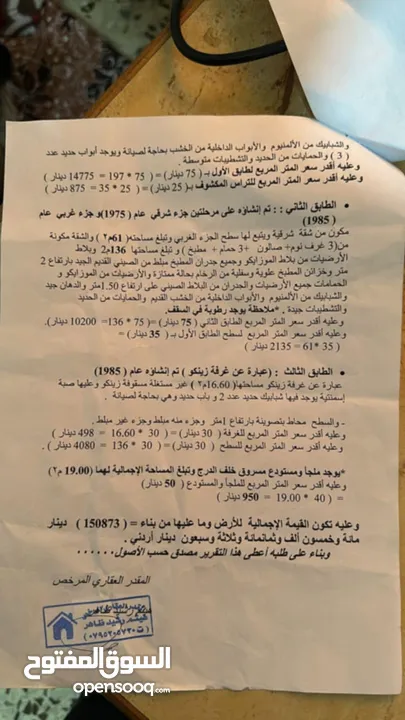 والشبابيك من الألمنيوم والأبواب الداخلية من الخشب بحاجة لصيانة ويوجد أبواب حديد عدد
( 3 ) والحمايات من الحديد والتشطيبات متوسطة .
وعليه أقدر سعر المتر المربع لطابق الأول بـ (75 دينار) = ( 75 * 197 = 14775 دينار)
وعليه أقدر سعر المتر المربع للتراس المكشوف بـ (25 دينار) = ( 25 * 35 = 875 دينار)
• الطابق الثاني : : تم إنشاؤه على مرحلتين جزء شرقي عام (1975) و جزء غربي عام
(1985)
مكون من شقة شرقية ويتبع لها سطح الجزء الغربي وتبلغ مساحته( 61م٢ ) والشقة مكونة
من(3 غرف نوم+ صالون +3 حمام + مطبخ ) و تبلغ مساحتها 136م2 وبلاط
الأرضيات من بلاط الموزايكو وجميع جدران المطبخ مبلط من الصيني القديم الجيد بارتفاع 2
متر وخزائن المطبخ علوية وسفلية من الرخام بحالة ممتازة والأرضيات من الموزايكو و
الحمامات جميع الأرضيات والجدران من البلاط الصيني على ارتفاع 1.50متر والدهان جيد
والشبابيك من الألمنيوم والأبواب الداخلية من الخشب القديم والحمايات من الحديد
والتشطيبات جيدة . *ملاحظة يوجد رطوبة في السقف.
وعليه أقدر سعر المتر المربع الطابق الثاني ( 75 دينار) =( 75 *136= 10200 دينار).
وعليه أقدر سعر المتر المربع لسطح الطابق الأول بـ ( 35 دينار) =
( 35 *61 = 2135 دينار )
• الطابق الثالث : (عبارة عن غرفة زينكو ) تم إنشاؤه عام (1985)
عبارة عن غرفة زينكو مساحتها(16.60م٢ ) غير مستغلة مسقوفة زينكو وعليها صبة
إسمنتية يوجد فيها شبابيك حديد عدد 2 و باب حديد وهي بحاجة لصيانة .
- والسطح محاط بتصوينة بارتفاع 1متر وجزء منه مبلط وجزء غير مبلط .
وعليه أقدر سعر المتر المربع للغرفة ( 30 دينار) = ( 30 * 16.60 = 498 دينار )
وعليه أقدر سعر المتر المربع للسطح ( 30 دينار) = ( 30 * 136 = 4080 دينار) .
*يوجد ملجأ ومستودع مسروق خلف الدرج وتبلغ المساحة الإجمالية لهما (19.00 م٢)
وعليه أقدر سعر المتر المربع للملجأ والمستودع ( 50 دينار)
= ( 40 * 19.00 = 950 دينار )
وعليه تكون القيمة الإجمالية للأرض وما عليها من بناء = ( 150873 ) دينار
مائة وخمسون ألف وثمانمائة وثلاثة وسبعون دينار أردني .
وبناء على طلبه أعطي هذا التقرير مصدق حسب الأصول......
المقدر العقاري المرخص
السوق المفتوح
opensooq.com